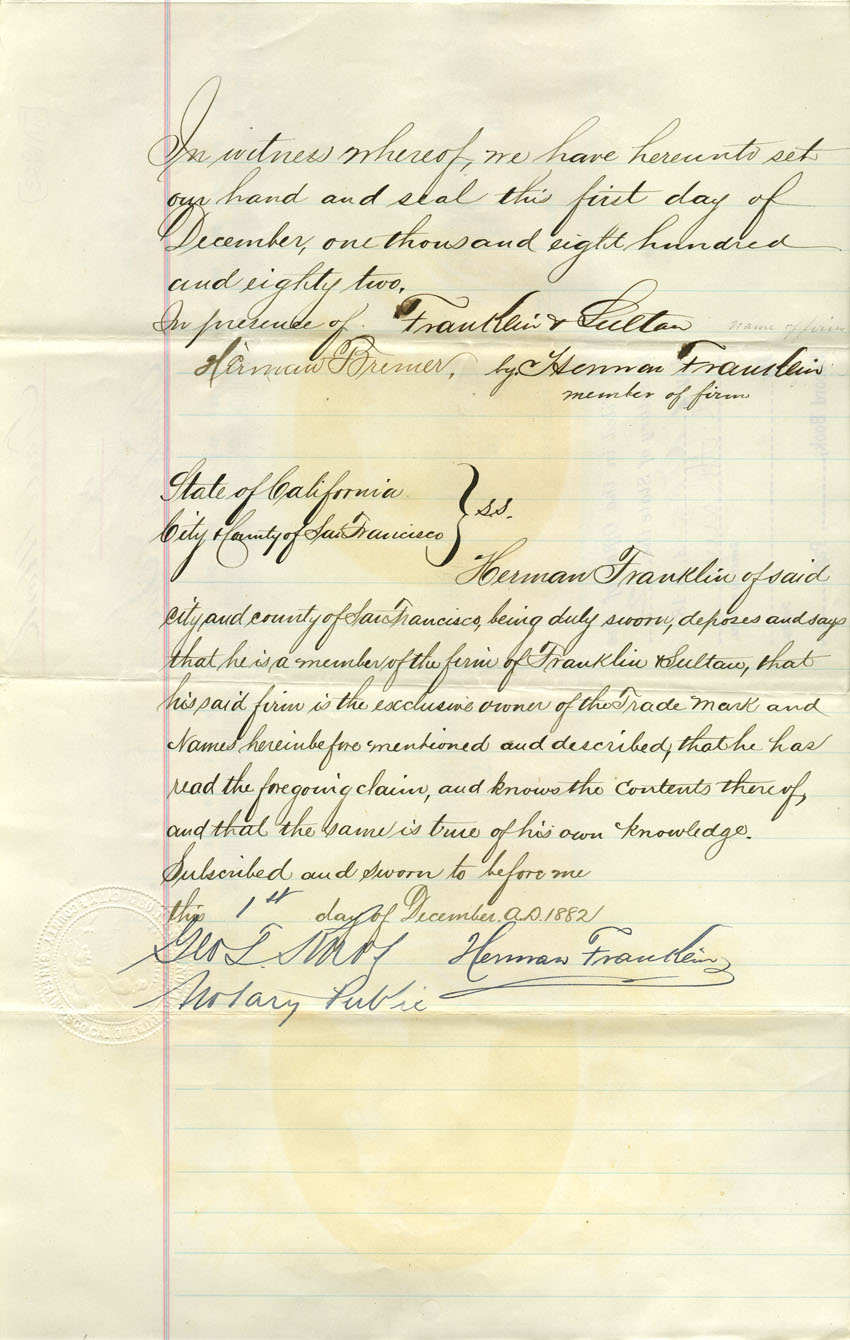 In witness whereof, we have hereunto set
our hand and seal this first day of
December, one thousand eight hundred
and eighty two.
In presence of. Franklin & Sultan name of firm
Herman Bremer. by. Herman Franklin
member of firm
State of California
City & County of San Francisco } s.s.
Herman Franklin of said
city and county of San Francisco, being duly sworn, deposes and says
that he is a member of the firm of Franklin & Sultan, that
his said firm is the exclusive owner of the Trade Mark and
Names hereinbefore mentioned and described, that he has
read the foregoing claim, and knows the contents thereof,
and that the same is true of his own knowledge.
Subscribed and sworn to before me
this 1st day of December. A.D. 1882
Geo T. Knox Herman Franklin
Notary Public